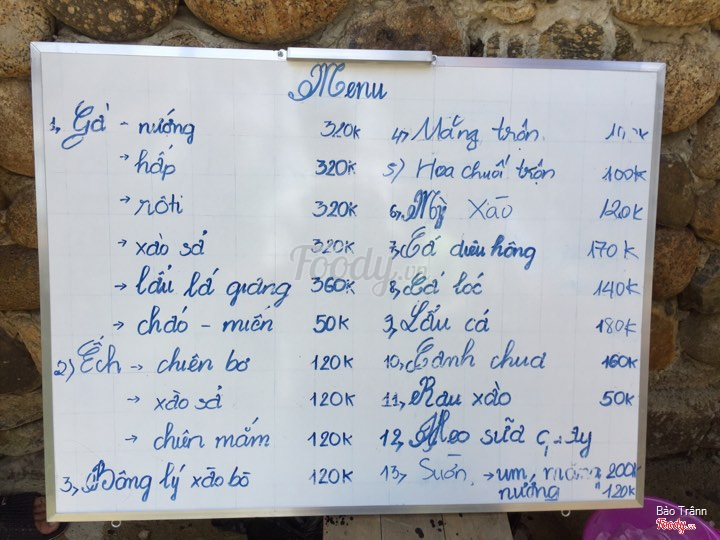 Menu
1, Gà - nướng 320K
→ hấp 320K
→ rôti 320K
→ xào sả 320K
→ lẩu lá giang 360K
→ cháo - miến 50K
2) Ếch → chiên bơ 120K
→ xào sả 120K
→ chiên mắm 120K
3, Bông lý xào bò 120K
4, Măng trộn
5) Hoa chuối trộn 100K
6, Mỳ xào 120K
7, Cá diêu hông 170K
8, Cá lóc 140K
9, Lẩu cá 180K
10, Canh chua 160K
11, Rau xào 50K
12, Heo sữa
13, Sườn → um, 200K
nướng " 120K
Foody.vn
Bảo Trânn
Foody.vn